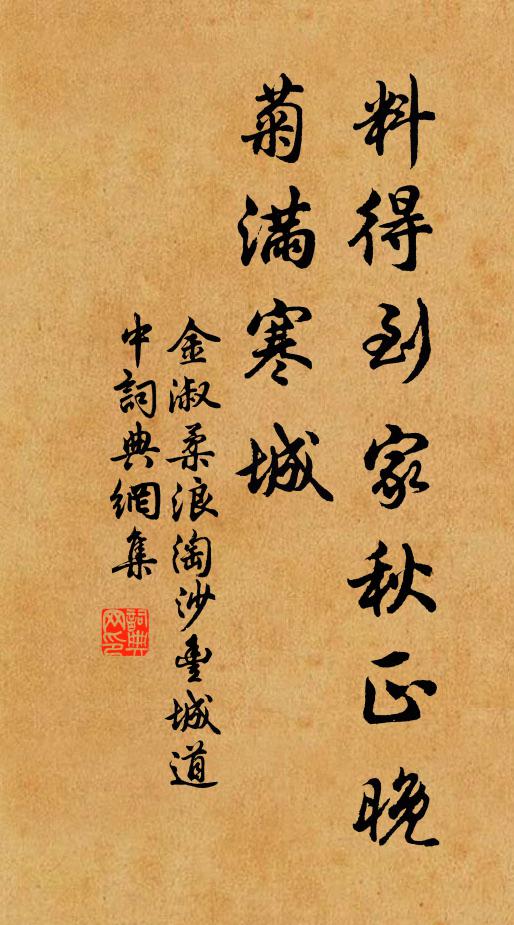 料得到家秋正晚
菊滿寒城
金淑柔浪淘沙豐城道
中詞典網集
詞典
网印